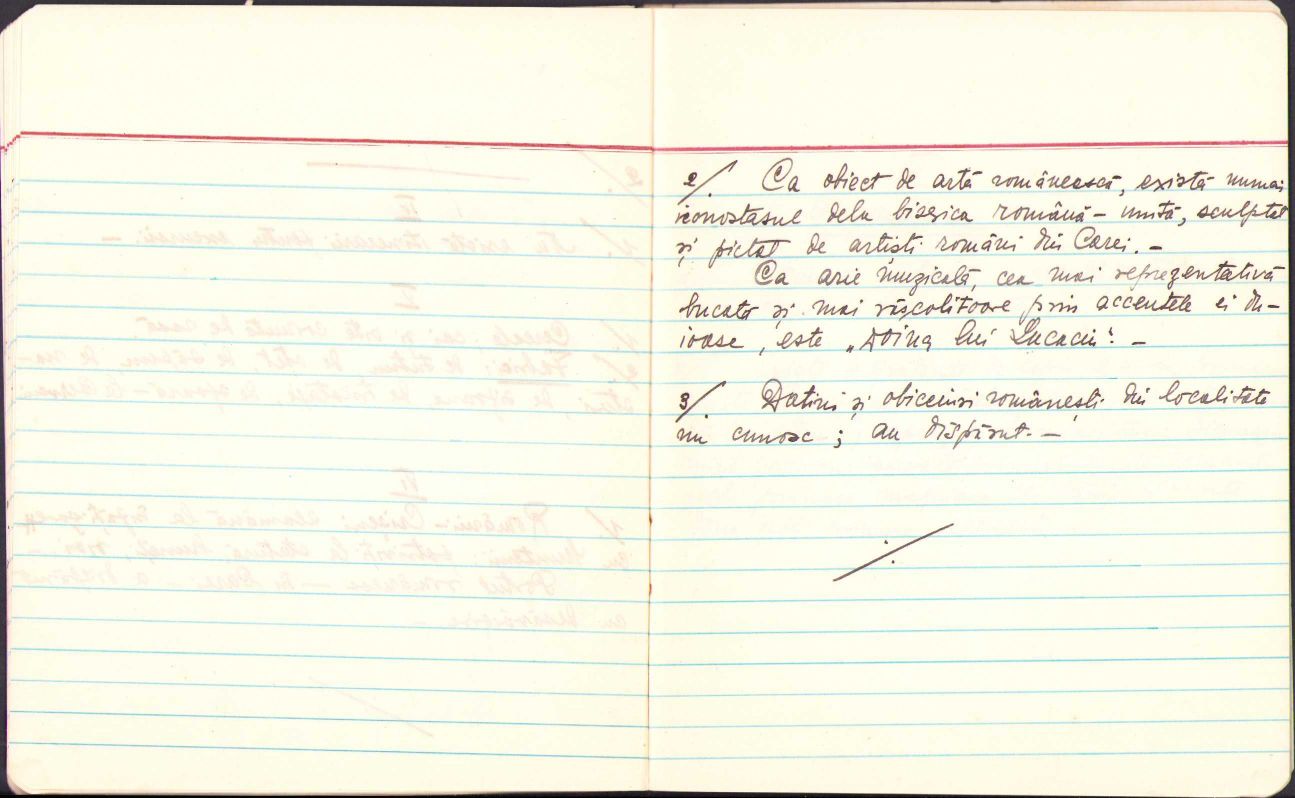 2/. Ca obiect de artă românească, există numai
iconostasul dela biserica română - unită, sculptat
și pictat de artiști români din Carei. -
Ca arie muzicală, cea mai reprezentativă
bucată și mai răscolitoare prin accentele ei du-
ioase, este „Doina lui Lucaciu". -
3/. Datini și obiceiuri românești din localitate
nu cunosc; au dispărut. -